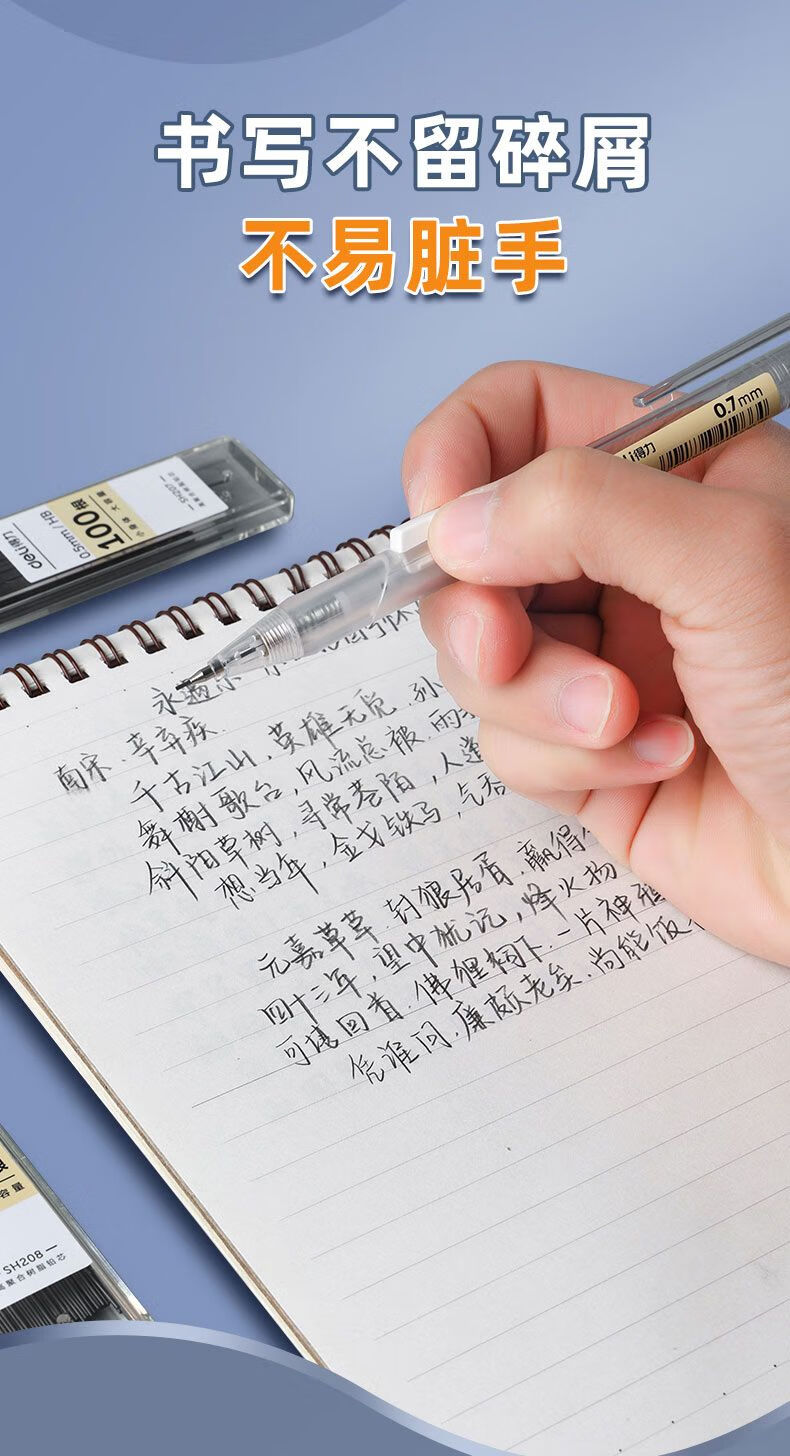 书写不留碎屑
不易脏手
0.7mm
得力
SH207
高聚合树脂铅芯
100根
小身体 大容量
0.5mm / HB
deli得力
永遇乐
南宋.辛弃疾
千古江山，英雄无觅.孙
舞榭歌台，风流总被.雨
斜阳草树，寻常巷陌，人道
想当年，金戈铁马，气吞
元嘉草草.封狼居胥.赢得
四十三年，望中犹记，烽火
可堪回首.佛狸祠下.一片神鸦
凭谁问.廉颇老矣.尚能饭
容量
SH208
聚合树脂铅芯